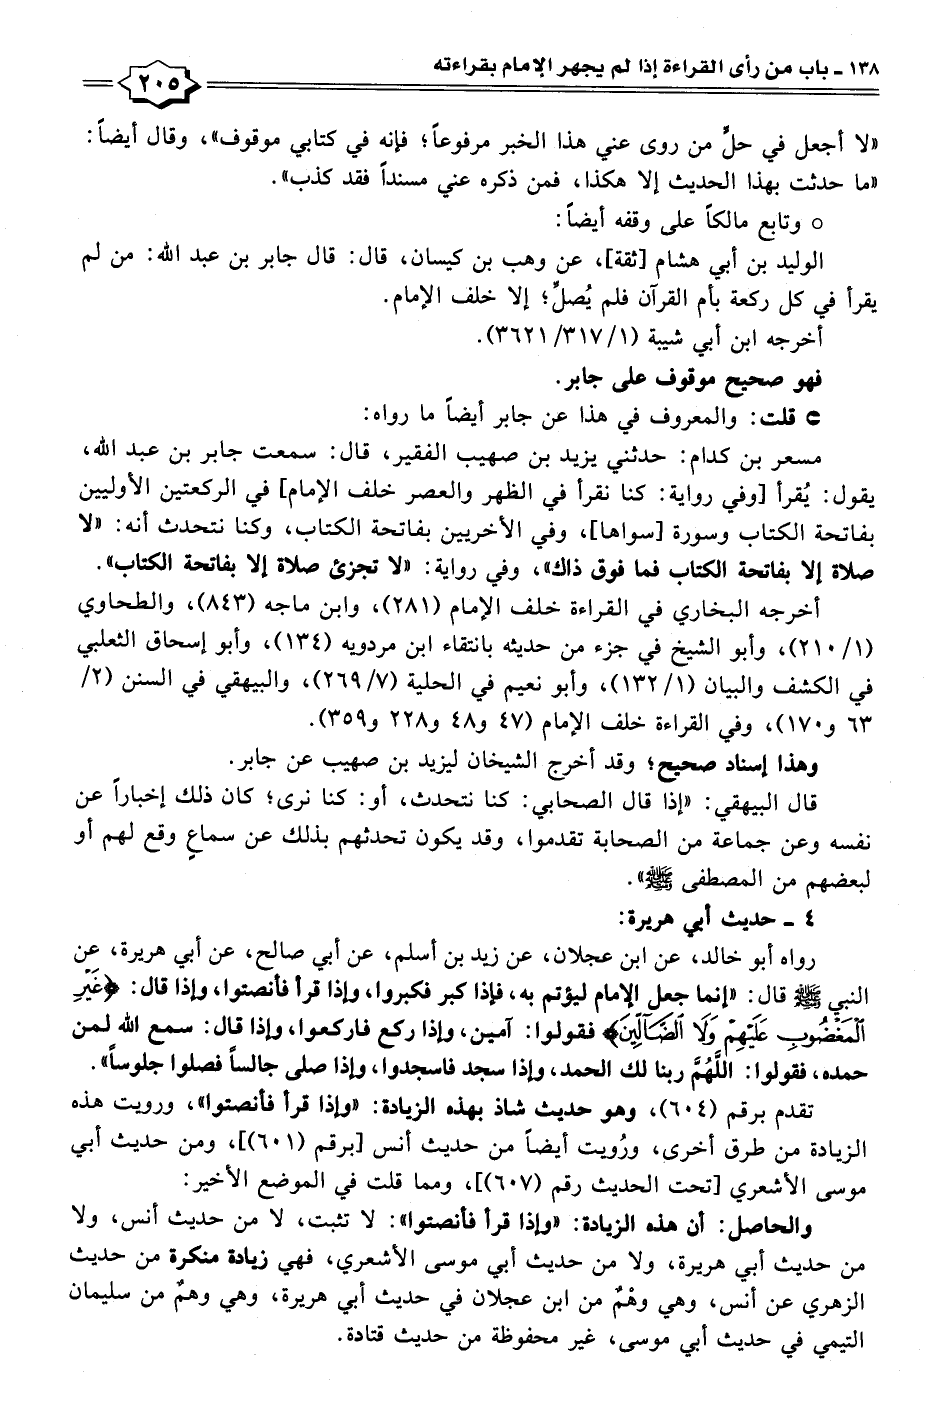 ١٣٨ - باب من رأى القراءة إذا لم يجهر الإمام بقراءته
٢٠٥
«لا أجعل في حلٍّ من روى عني هذا الخبر مرفوعاً؛ فإنه في كتابي موقوف»، وقال أيضاً:
«ما حدثت بهذا الحديث إلا هكذا، فمن ذكره عني مسنداً فقد كذب».
○ وتابع مالكاً على وقفه أيضاً:
الوليد بن أبي هشام [ثقة]، عن وهب بن كيسان، قال: قال جابر بن عبد الله: من لم
يقرأ في كل ركعة بأم القرآن فلم يُصلِّ؛ إلا خلف الإمام.
أخرجه ابن أبي شيبة (١/ ٣١٧/ ٣٦٢١).
فهو صحيح موقوف على جابر.
قلت: والمعروف في هذا عن جابر أيضاً ما رواه:
مسعر بن كدام: حدثني يزيد بن صهيب الفقير، قال: سمعت جابر بن عبد الله،
يقول: يُقرأ [وفي رواية: كنا نقرأ في الظهر والعصر خلف الإمام] في الركعتين الأوليين
بفاتحة الكتاب وسورة [سواها]، وفي الأخريين بفاتحة الكتاب، وكنا نتحدث أنه: «لا
صلاة إلا بفاتحة الكتاب فما فوق ذاك»، وفي رواية: «لا تجزئ صلاة إلا بفاتحة الكتاب».
أخرجه البخاري في القراءة خلف الإمام (٢٨١)، وابن ماجه (٨٤٣)، والطحاوي
(١/ ٢١٠)، وأبو الشيخ في جزء من حديثه بانتقاء ابن مردويه (١٣٤)، وأبو إسحاق الثعلبي
في الكشف والبيان (١/ ١٣٢)، وأبو نعيم في الحلية (٧/ ٢٦٩)، والبيهقي في السنن (٢/
٦٣ و١٧٠)، وفي القراءة خلف الإمام (٤٧ و٤٨ و٢٢٨ و٣٥٩).
وهذا إسناد صحيح؛ وقد أخرج الشيخان ليزيد بن صهيب عن جابر.
قال البيهقي: «إذا قال الصحابي: كنا نتحدث، أو: كنا نرى؛ كان ذلك إخباراً عن
نفسه وعن جماعة من الصحابة تقدموا، وقد يكون تحدثهم بذلك عن سماعٍ وقع لهم أو
لبعضهم من المصطفى ﷺ».
٤ - حديث أبي هريرة:
رواه أبو خالد، عن ابن عجلان، عن زيد بن أسلم، عن أبي صالح، عن أبي هريرة، عن
النبي ﷺ قال: «إنما جعل الإمام ليؤتم به، فإذا كبر فكبروا، وإذا قرأ فأنصتوا، وإذا قال: ﴿غَيْرِ
ٱلْمَغْضُوبِ عَلَيْهِمْ وَلَا ٱلضَّآلِّينَ﴾ فقولوا: آمين، وإذا ركع فاركعوا، وإذا قال: سمع الله لمن
حمده، فقولوا: اللَّهُمَّ ربنا لك الحمد، وإذا سجد فاسجدوا، وإذا صلى جالساً فصلوا جلوساً».
تقدم برقم (٦٠٤)، وهو حديث شاذ بهذه الزيادة: «وإذا قرأ فأنصتوا»، ورويت هذه
الزيادة من طرق أخرى، ورُويت أيضاً من حديث أنس [برقم (٦٠١)]، ومن حديث أبي
موسى الأشعري [تحت الحديث رقم (٦٠٧)]، ومما قلت في الموضع الأخير:
والحاصل: أن هذه الزيادة: «وإذا قرأ فأنصتوا»: لا تثبت، لا من حديث أنس، ولا
من حديث أبي هريرة، ولا من حديث أبي موسى الأشعري، فهي زيادة منكرة من حديث
الزهري عن أنس، وهي وهْمٌ من ابن عجلان في حديث أبي هريرة، وهي وهمٌ من سليمان
التيمي في حديث أبي موسى، غير محفوظة من حديث قتادة.